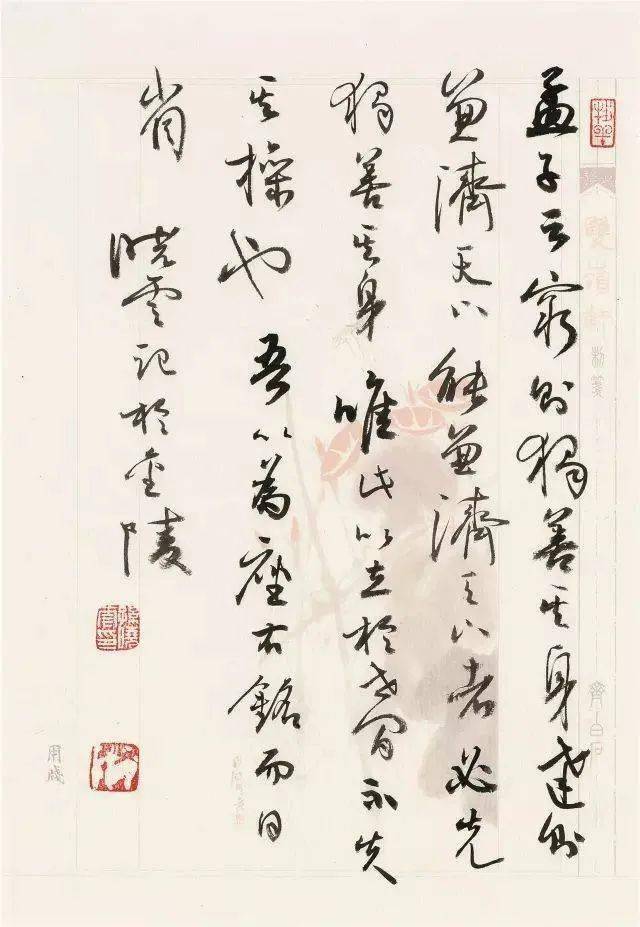 孟子云窮則獨善其身達則
兼濟天下能兼濟天下者必先
獨善其身唯此以立於世間不失
其操也吾以為座右銘而日
省 曉雲記於金陵
雙淯軒製箋
齊白石
用牋